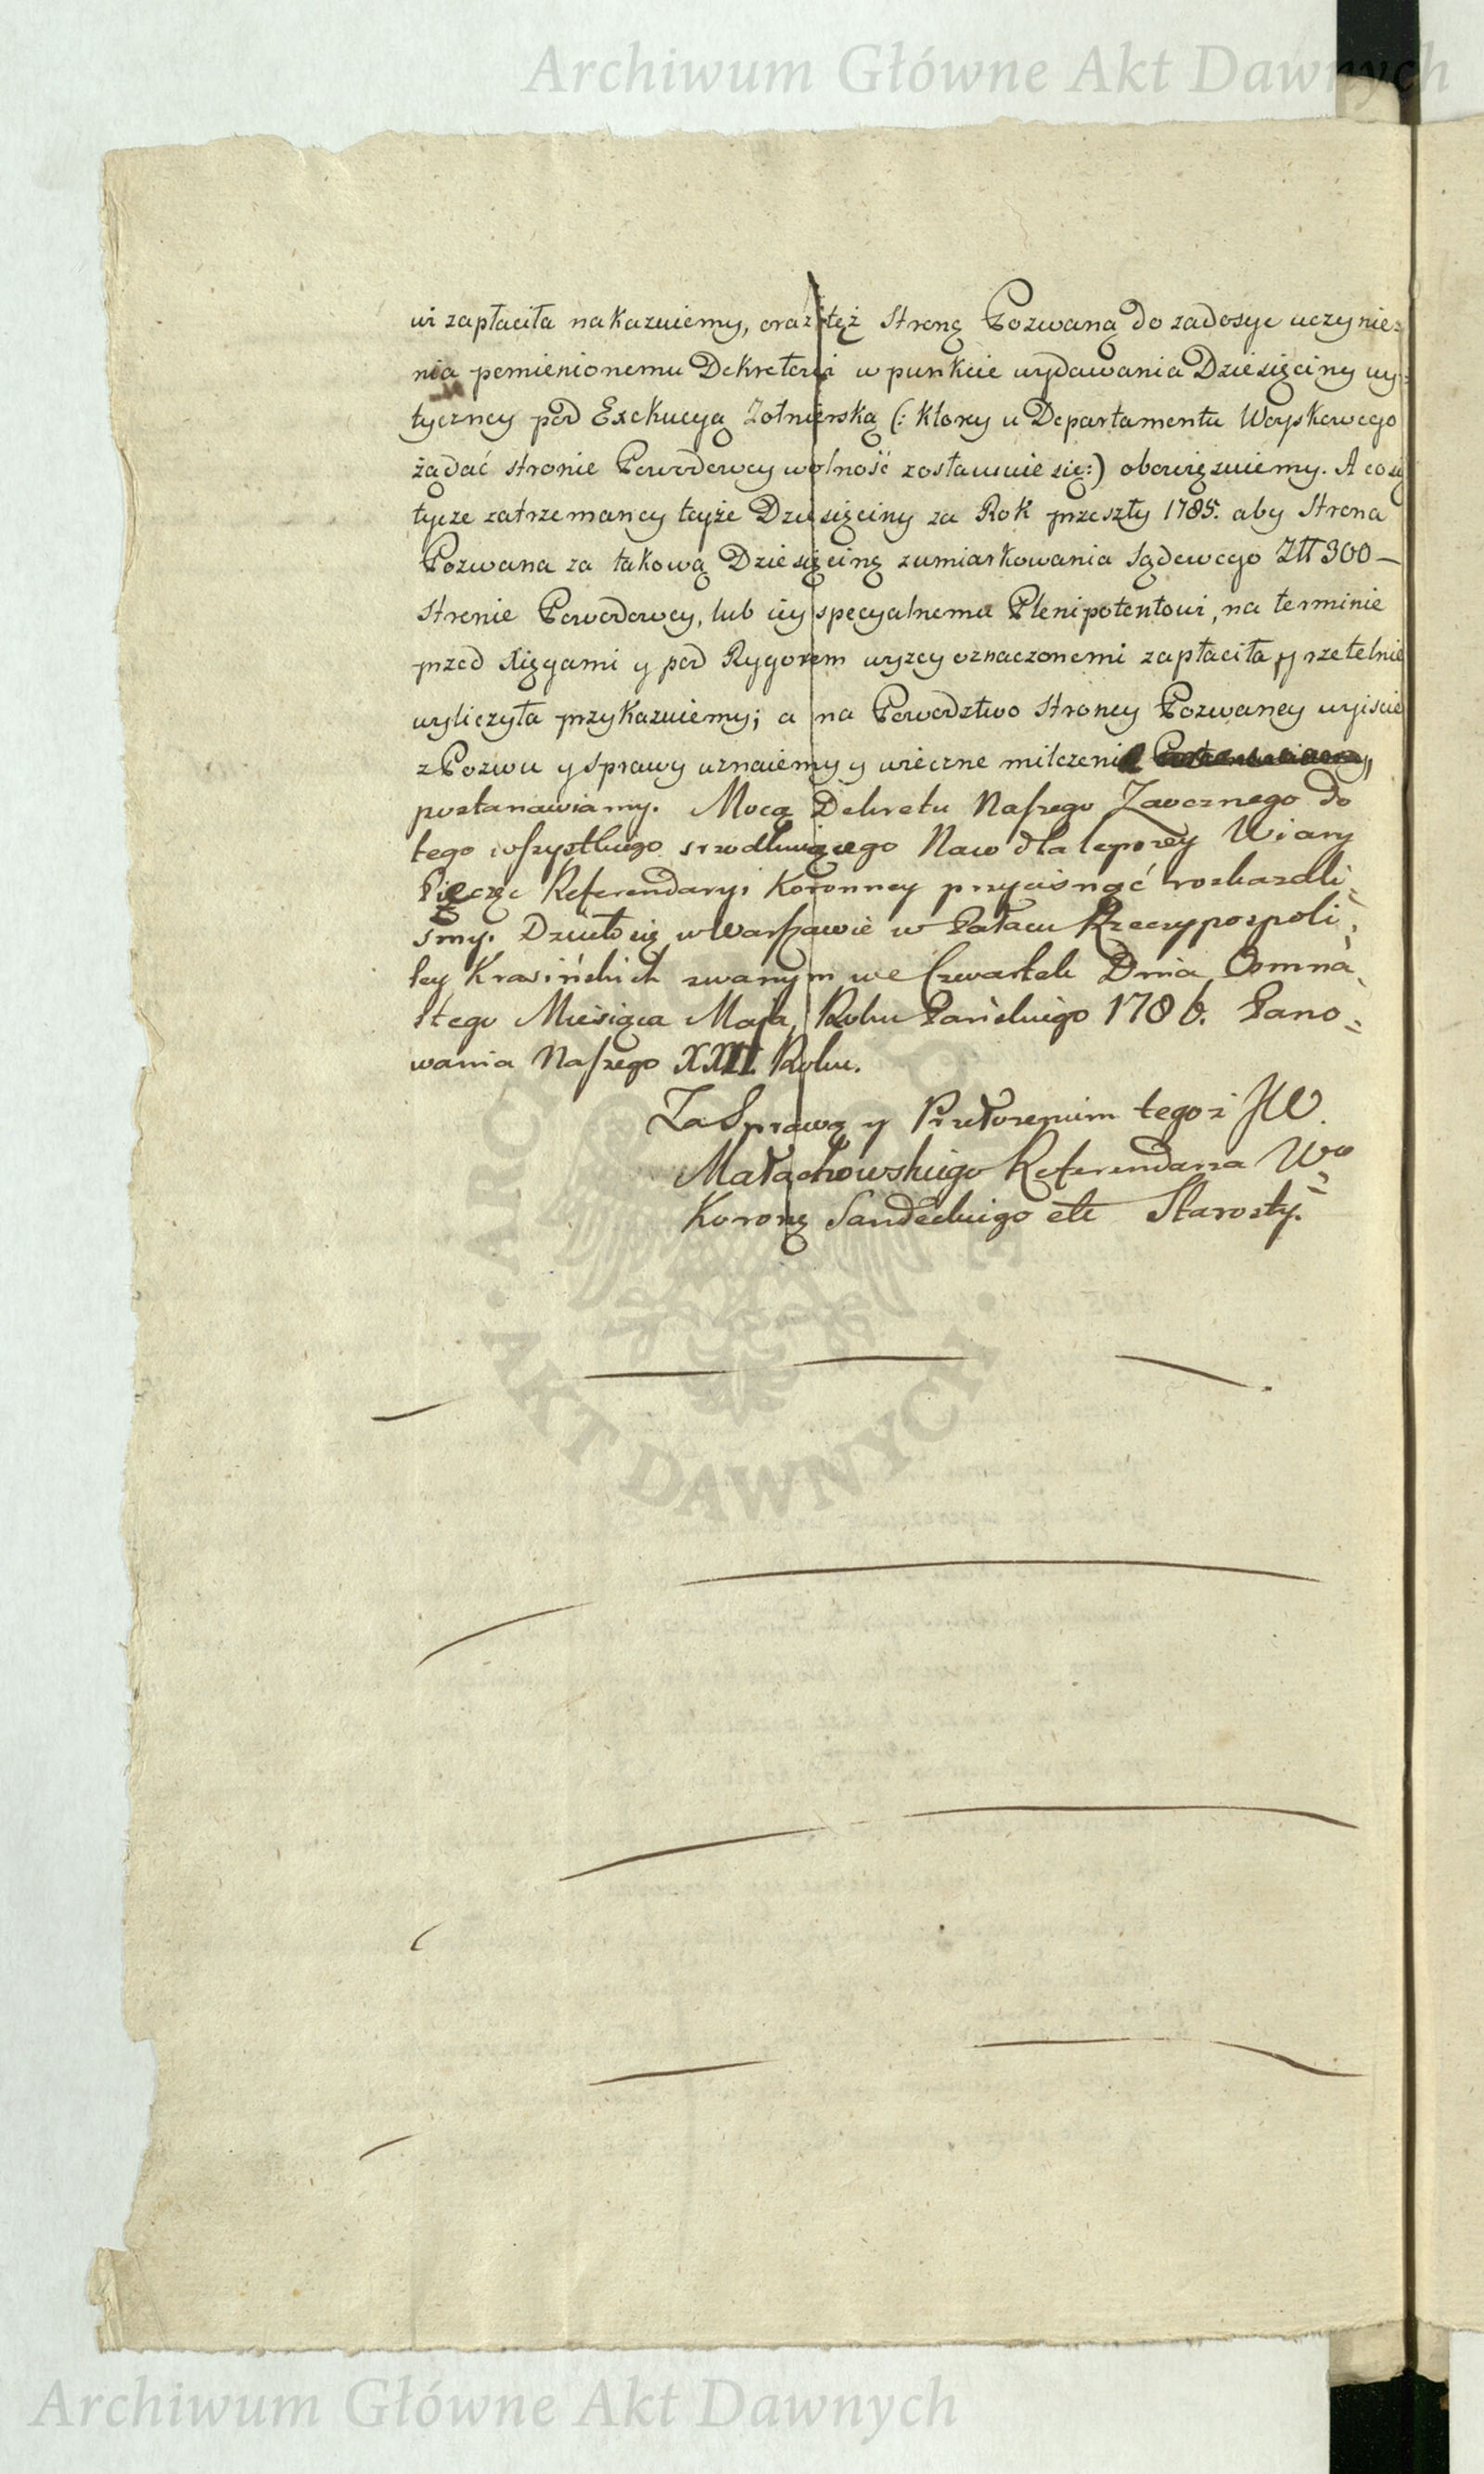 Archiwum Główne Akt Dawnych
wi zapłaciła nakazuiemy, oraz też Stronę Pozwaną do zadosyc uczynie=
nia pomienionemu Dekretowi w punkcie wydawania Dziesięciny wy=
tyczney pod Exekucyą Zołnierską (: ktory u Departamentu Woyskowego
żądać stronie Powodowey wolność zostawuie się :) obowięzuiemy. A co się
tycze zatrzemaney teyże Dziesięciny za Rok przeszły 1785. aby Strona
Pozwana za takową Dziesięcinę zumiarkowania Sądowego Złł 300 —
Stronie Powodowey, lub iey specyalnemu Plenipotentowi, na terminie
przed Xięgami y pod Rygorem wyzey oznaczonemi zapłaciła y rzetelnie
wyliczyła przykazuiemy; a na Powodztwo Stroney Pozwaney wyiscie
z Pozwu y sprawy uznaiemy y wieczne milczenie
postanawiamy. Mocą Dekretu Naszego Zaocznego do
tego wszystkiego Naw dla lepszey Wiary
Pieczęc Referendaryi Koronney przycisnąć roskazali=
smy. Działo się w Warszawie w Pałacu Rzeczypospoli=
tey Krasińskich zwanym we Czwartek Dnia Osmna=
stego Miesiąca Maja, Roku Pańskiego 1786. Pano=
wania Naszego XXII Roku.
Za Sprawą y Przełozeniem tegoż JW.
Małachowskiego Referendarza Wo
Korong Sandeckiego etc Starosty.
ARCHIWUM GŁÓWNE · AKT DAWNYCH ·
Archiwum Główne Akt Dawnych